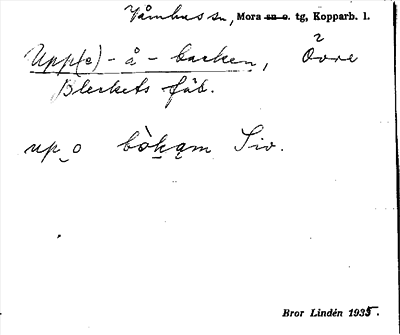 Våmhus sn, Mora sn o. tg, Kopparb. l.
Upp(e)-å-backen, Övre
Bleckets fäb.
up o bòkąm Siv.
Bror Lindén 1935.